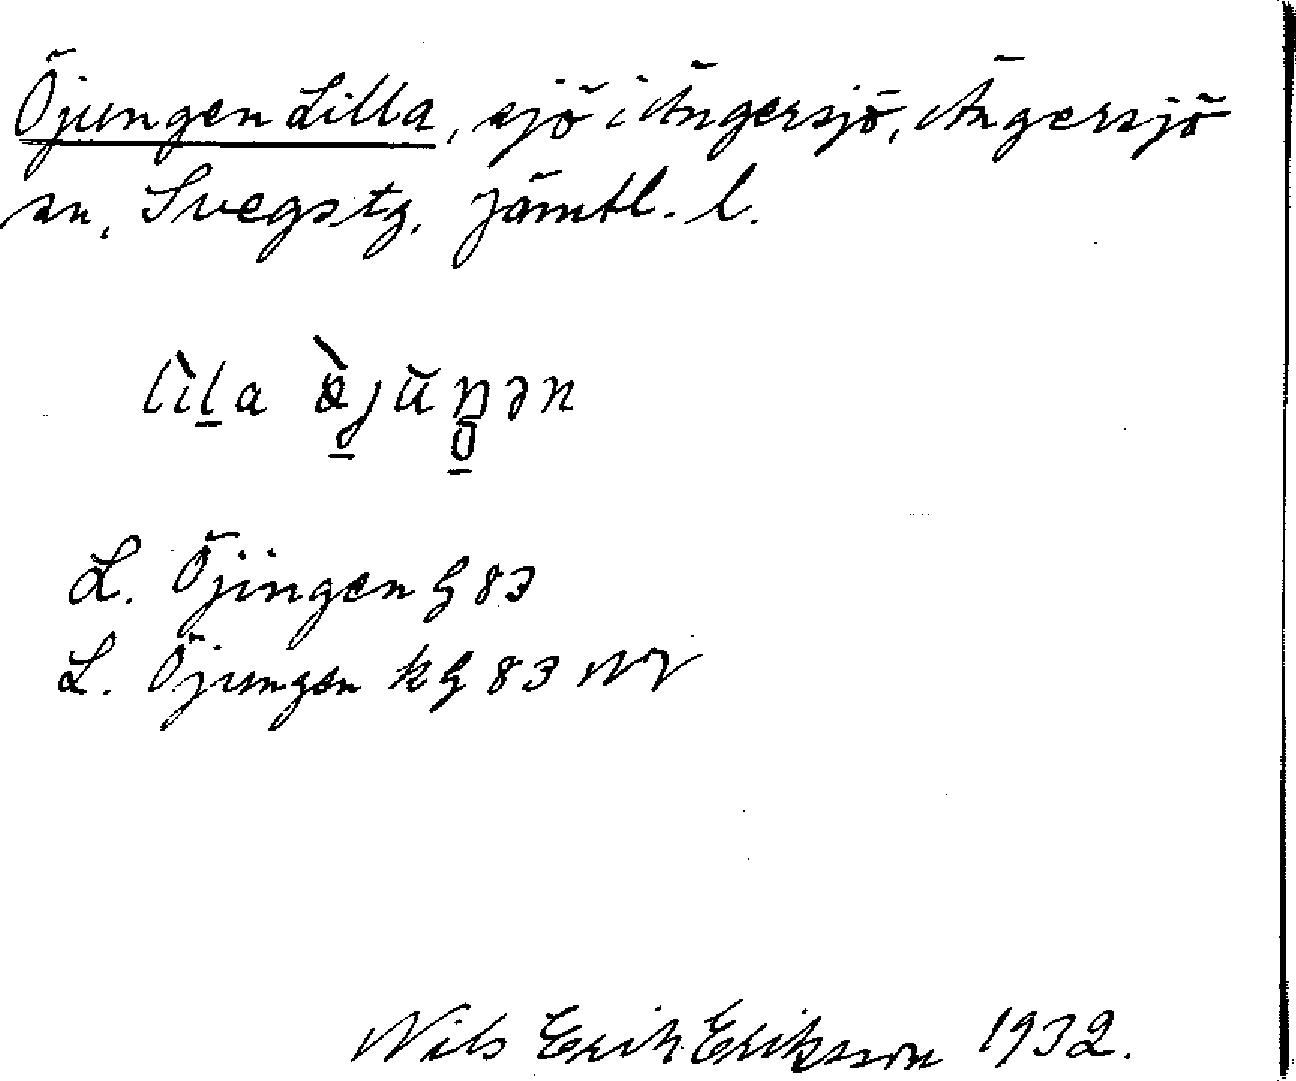 Öjungen Lilla, sjö i Ängersjö, Ängersjö
sn, Svegs tg. Jämtl. l.
lìla
L. Öjingen G 83
L. Öjungen kG 83 NV
Nils Erik Eriksson 1932.